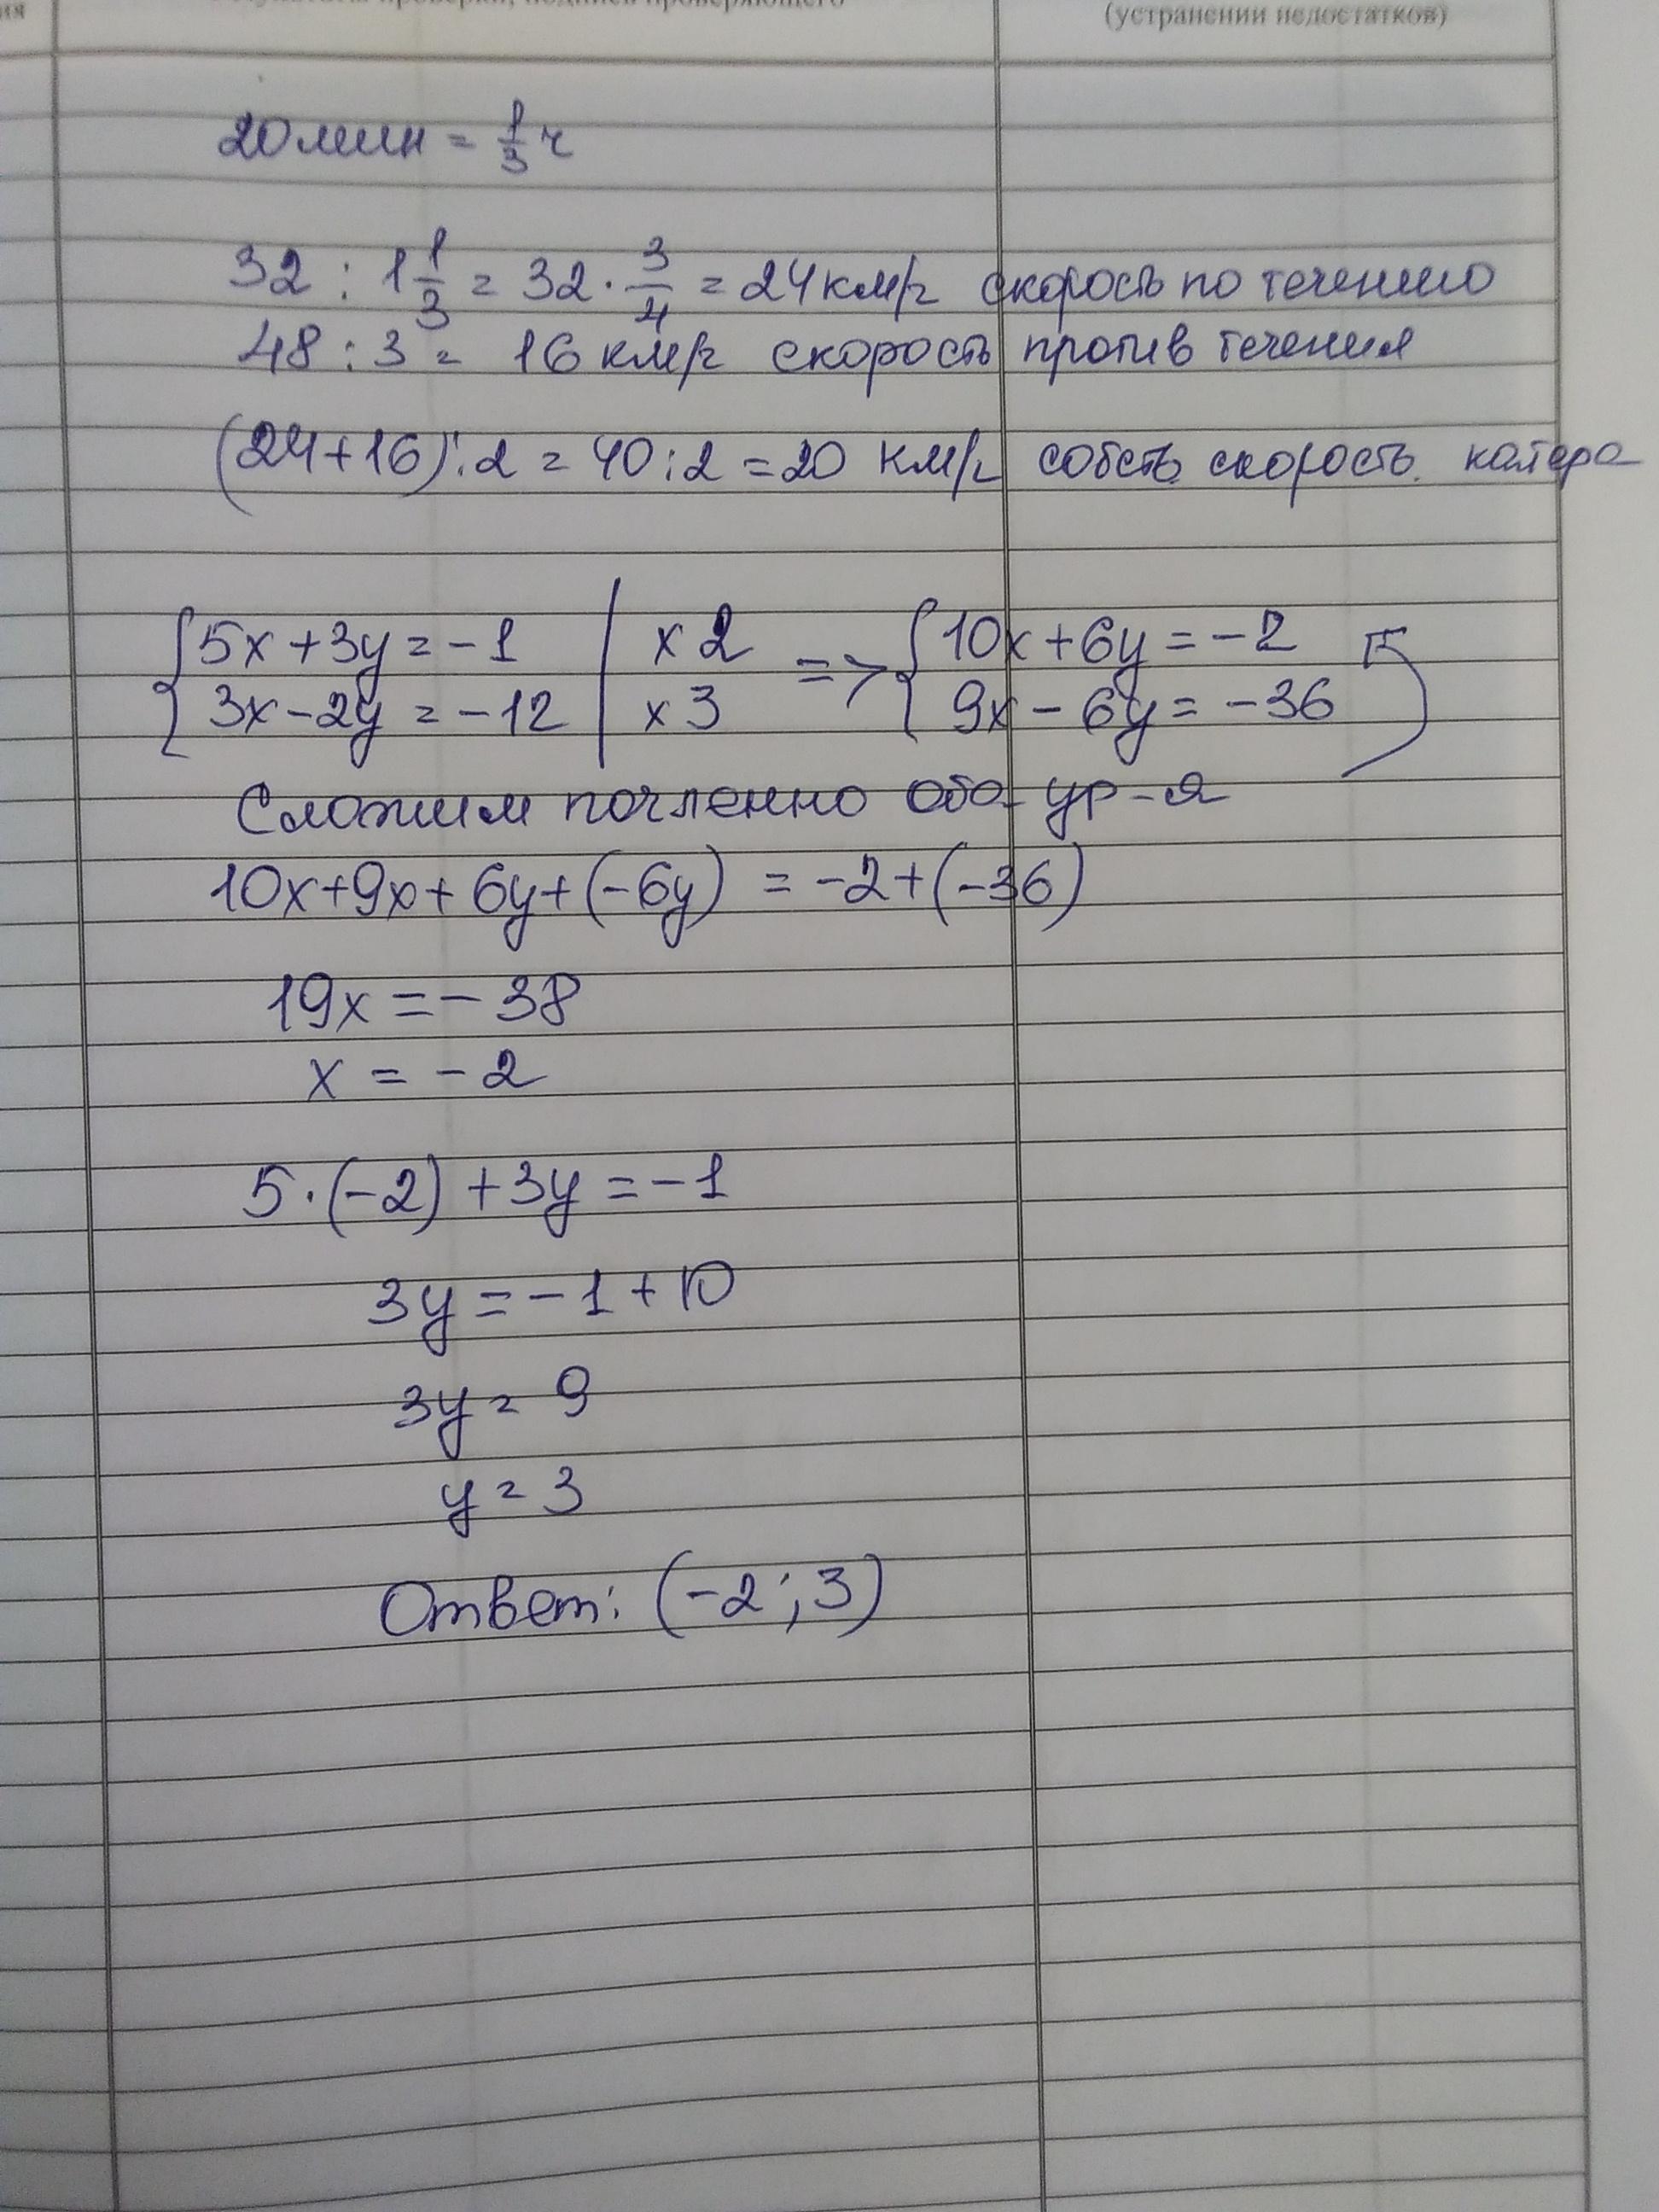 (устранении недостатков)
20 мин = 1/3 ч
32 : 1 1/3 = 32 · 3/4 = 24 км/ч скорость по течению
48 : 3 = 16 км/ч скорость против течения
(24+16) : 2 = 40 : 2 = 20 км/ч собств. скорость катера
{5x + 3y = -1 | x 2 => {10x + 6y = -2
{3x - 2y = -12 | x 3 {9x - 6y = -36
Сложим почленно оба ур-я
10x + 9x + 6y + (-6y) = -2 + (-36)
19x = -38
x = -2
5 · (-2) + 3y = -1
3y = -1 + 10
3y = 9
y = 3
Ответ: (-2; 3)